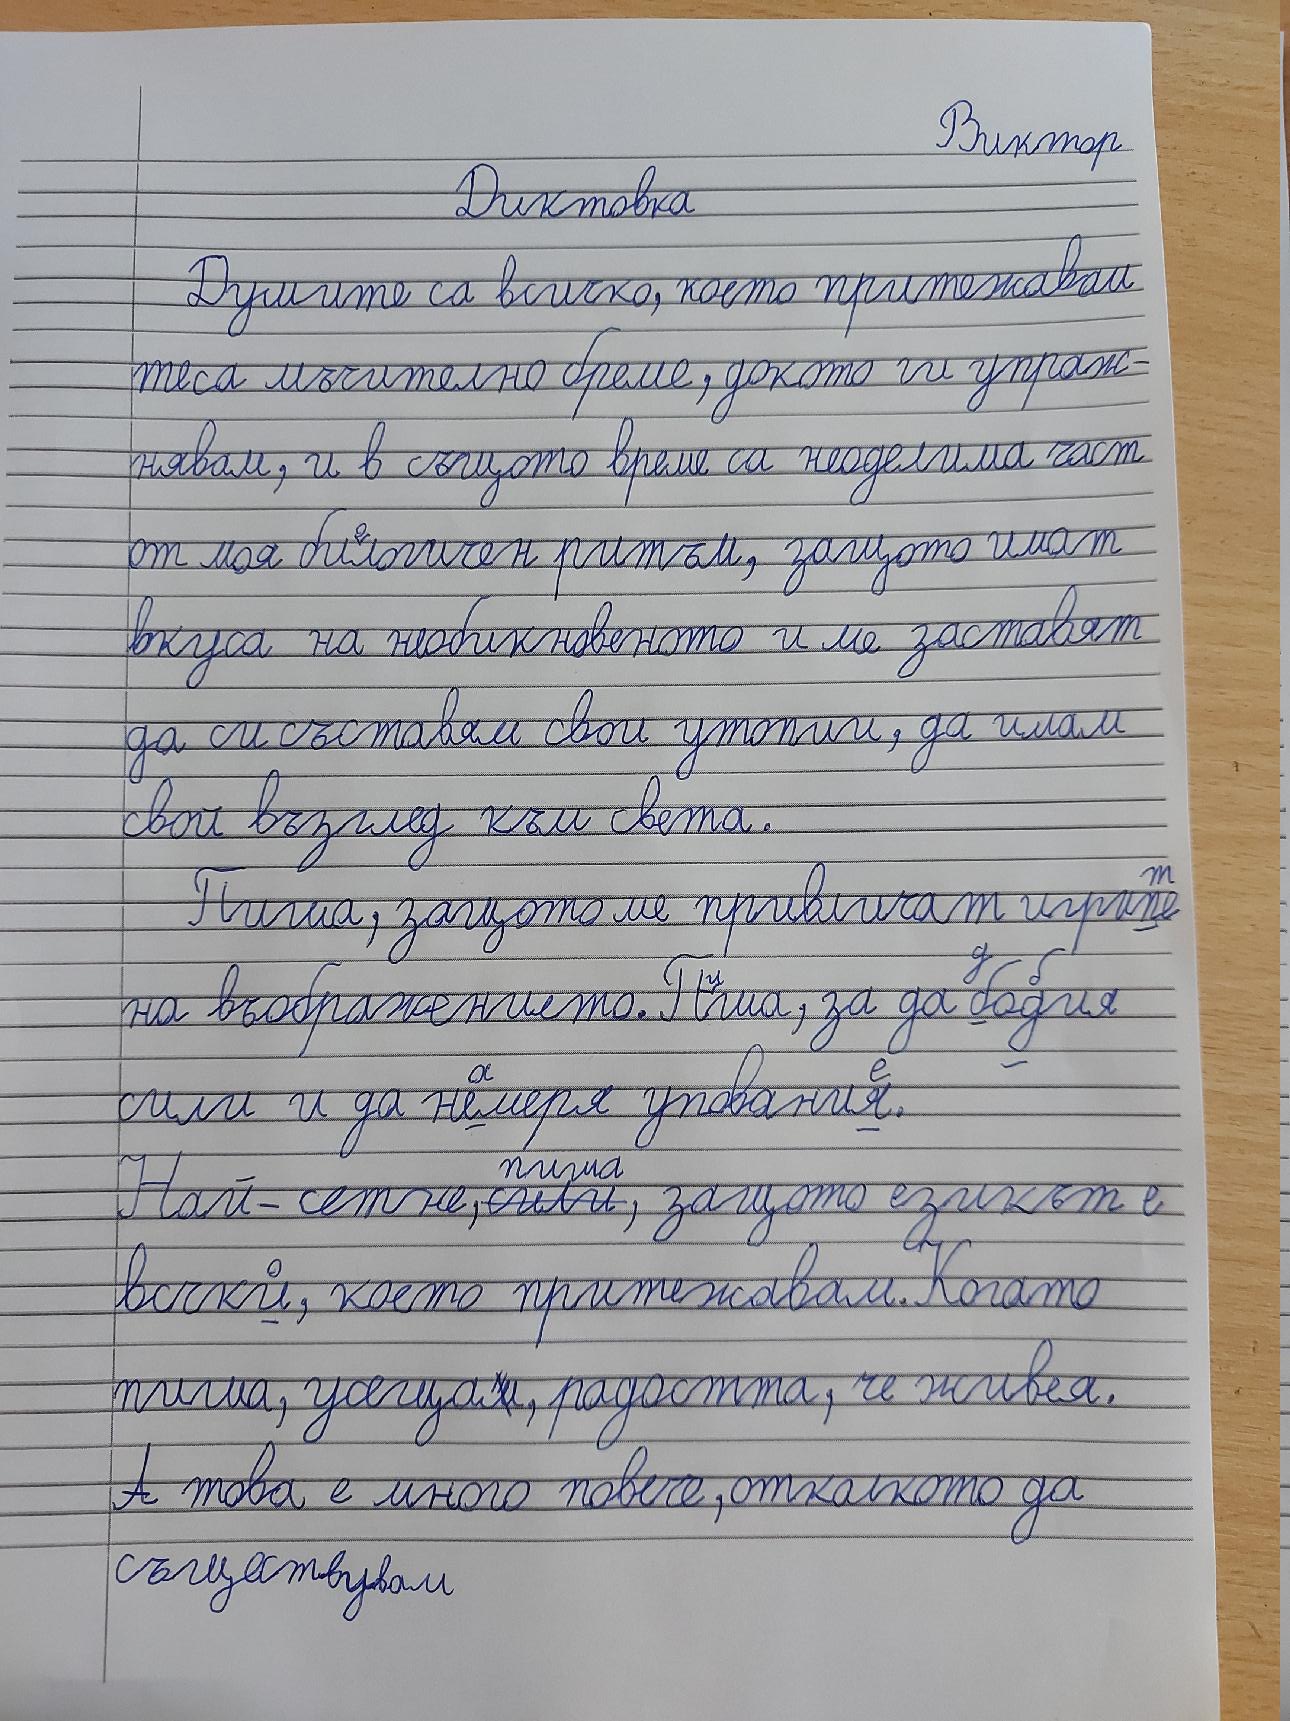 Виктор
Диктовка
Думите са всичко, което притежавам
теса мъчително бреме, докото ги упраж-
нявам, и в същото време са неоделима част
от моя биологичен ритъм, защото имат
вкуса на необикновеното и ме заставят
да си съставям свои утопии, да имам
свой възглед към света.
Пиша, защото ме привличат игрите
на въображението. Пиша, за да добия
сили и да намеря упование.
Най-сетне, пиша, защото езикът е
всчко, което притежавам. Когато
пиша, усещам, радостта, че живея.
А това е много повече, отколкото да
съществувам